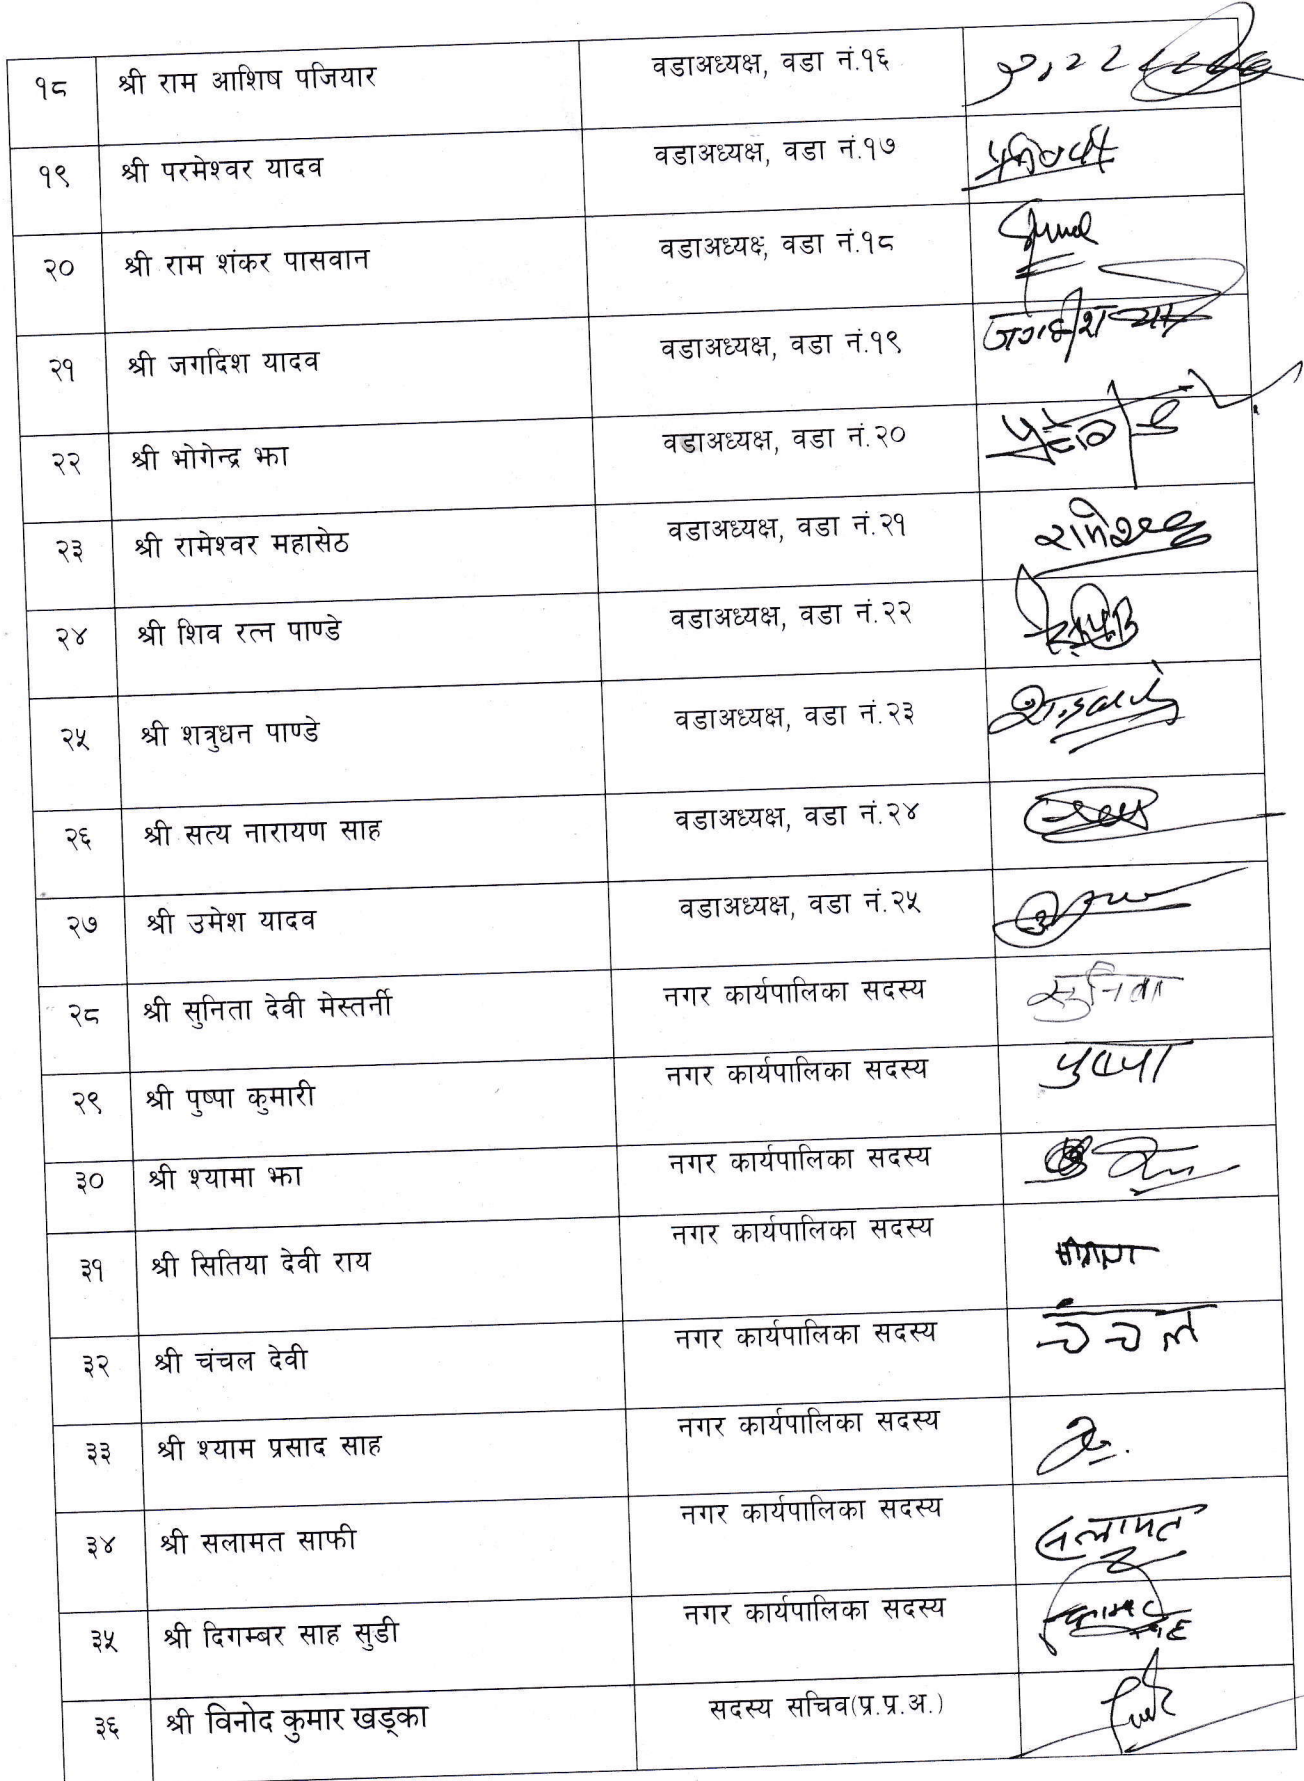 १८ श्री राम आशिष पजियार वडाअध्यक्ष, वडा नं.१६
१९ श्री परमेश्वर यादव वडाअध्यक्ष, वडा नं.१७
२० श्री राम शंकर पासवान वडाअध्यक्ष, वडा नं.१८
२१ श्री जगदिश यादव वडाअध्यक्ष, वडा नं.१९
२२ श्री भोगेन्द्र झा वडाअध्यक्ष, वडा नं.२०
२३ श्री रामेश्वर महासेठ वडाअध्यक्ष, वडा नं.२१
२४ श्री शिव रत्न पाण्डे वडाअध्यक्ष, वडा नं.२२
२५ श्री शत्रुधन पाण्डे वडाअध्यक्ष, वडा नं.२३
२६ श्री सत्य नारायण साह वडाअध्यक्ष, वडा नं.२४
२७ श्री उमेश यादव वडाअध्यक्ष, वडा नं.२५
२८ श्री सुनिता देवी मेस्तर्नी नगर कार्यपालिका सदस्य सुनिता
२९ श्री पुष्पा कुमारी नगर कार्यपालिका सदस्य पुष्पा
३० श्री श्यामा झा नगर कार्यपालिका सदस्य
३१ श्री सितिया देवी राय नगर कार्यपालिका सदस्य
३२ श्री चंचल देवी नगर कार्यपालिका सदस्य चंचल
३३ श्री श्याम प्रसाद साह नगर कार्यपालिका सदस्य
३४ श्री सलामत साफी नगर कार्यपालिका सदस्य सलामत
३५ श्री दिगम्बर साह सुडी नगर कार्यपालिका सदस्य
३६ श्री विनोद कुमार खड्का सदस्य सचिव(प्र.प्र.अ.)